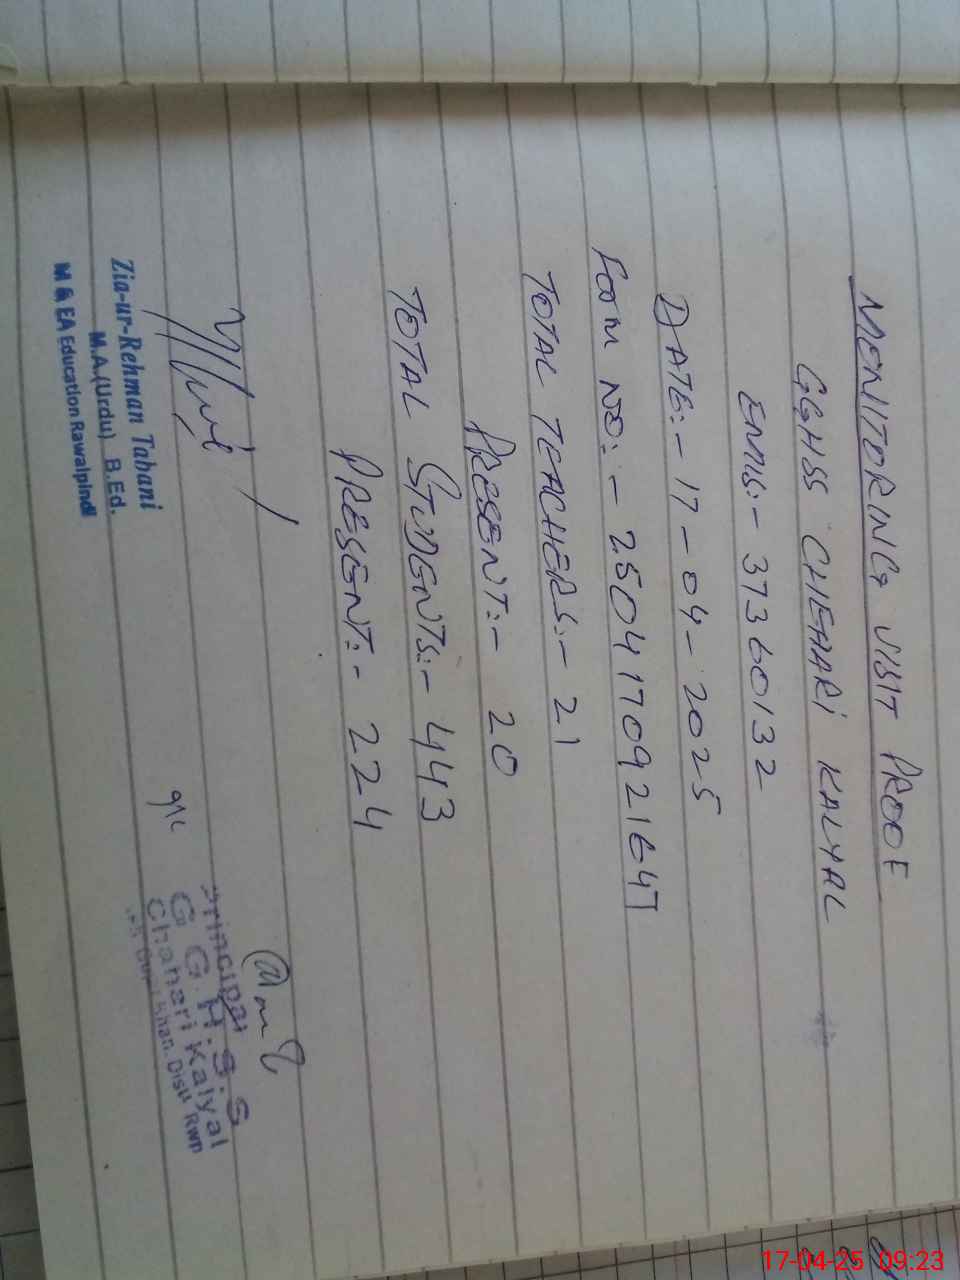 MONITORING VISIT PROOF
GGHSS CHEHARI KALYAL
EMIS:- 37360132
DATE:- 17-04-2025
FORM NO:- 2504170921647
TOTAL TEACHERS:- 21
PRESENT:- 20
TOTAL STUDENTS:- 443
PRESENT:- 224
Zia-ur-Rehman Tabani
M.A.(Urdu) B.Ed.
M & EA Education Rawalpindi
Principal
G G.H.S.S
Chahari Kalyal
Khan. Distt Rwp
17-04-25 09:23